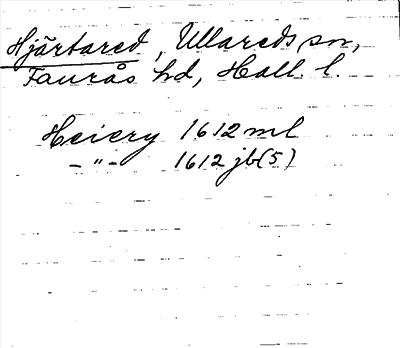 Hjärtared, Ullareds sn,
Faurås hd, Hall. l.
Heiery 1612 ml
-"- 1612 jb(5)